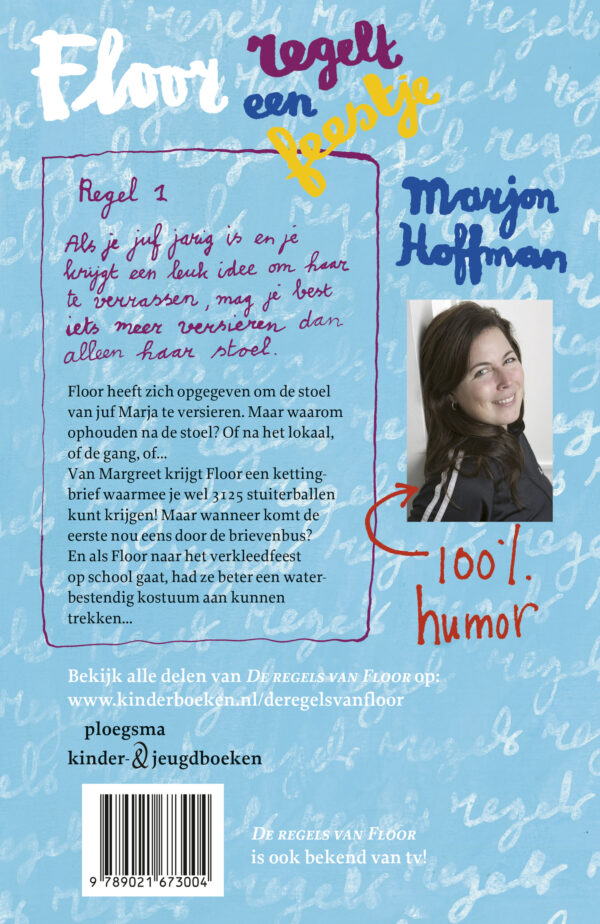 Floor regelt
een
feestje
Regel 1
Als je juf jarig is en je
krijgt een leuk idee om haar
te verrassen, mag je best
iets meer versieren dan
alleen haar stoel.
Floor heeft zich opgegeven om de stoel
van juf Marja te versieren. Maar waarom
ophouden na de stoel? Of na het lokaal,
of de gang, of...
Van Margreet krijgt Floor een ketting-
brief waarmee je wel 3125 stuiterballen
kunt krijgen! Maar wanneer komt de
eerste nou eens door de brievenbus?
En als Floor naar het verkleedfeest
op school gaat, had ze beter een water-
bestendig kostuum aan kunnen
trekken...
Marjon
Hoffman
100%
humor
Bekijk alle delen van De regels van Floor op:
www.kinderboeken.nl/deregelsvanfloor
ploegsma
kinder-&jeugdboeken
9 789021 673004
De regels van Floor
is ook bekend van tv!